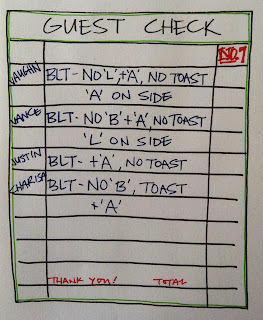 GUEST CHECK
NO.7
VAUGHN BLT- NO 'L', +'A', NO TOAST
'A' ON SIDE
VANCE BLT- NO 'B' +'A', NO TOAST
'L' ON SIDE
JUSTIN BLT- +'A', NO TOAST
CHARISA BLT- NO 'B', TOAST
+'A'
THANK YOU! TOTAL